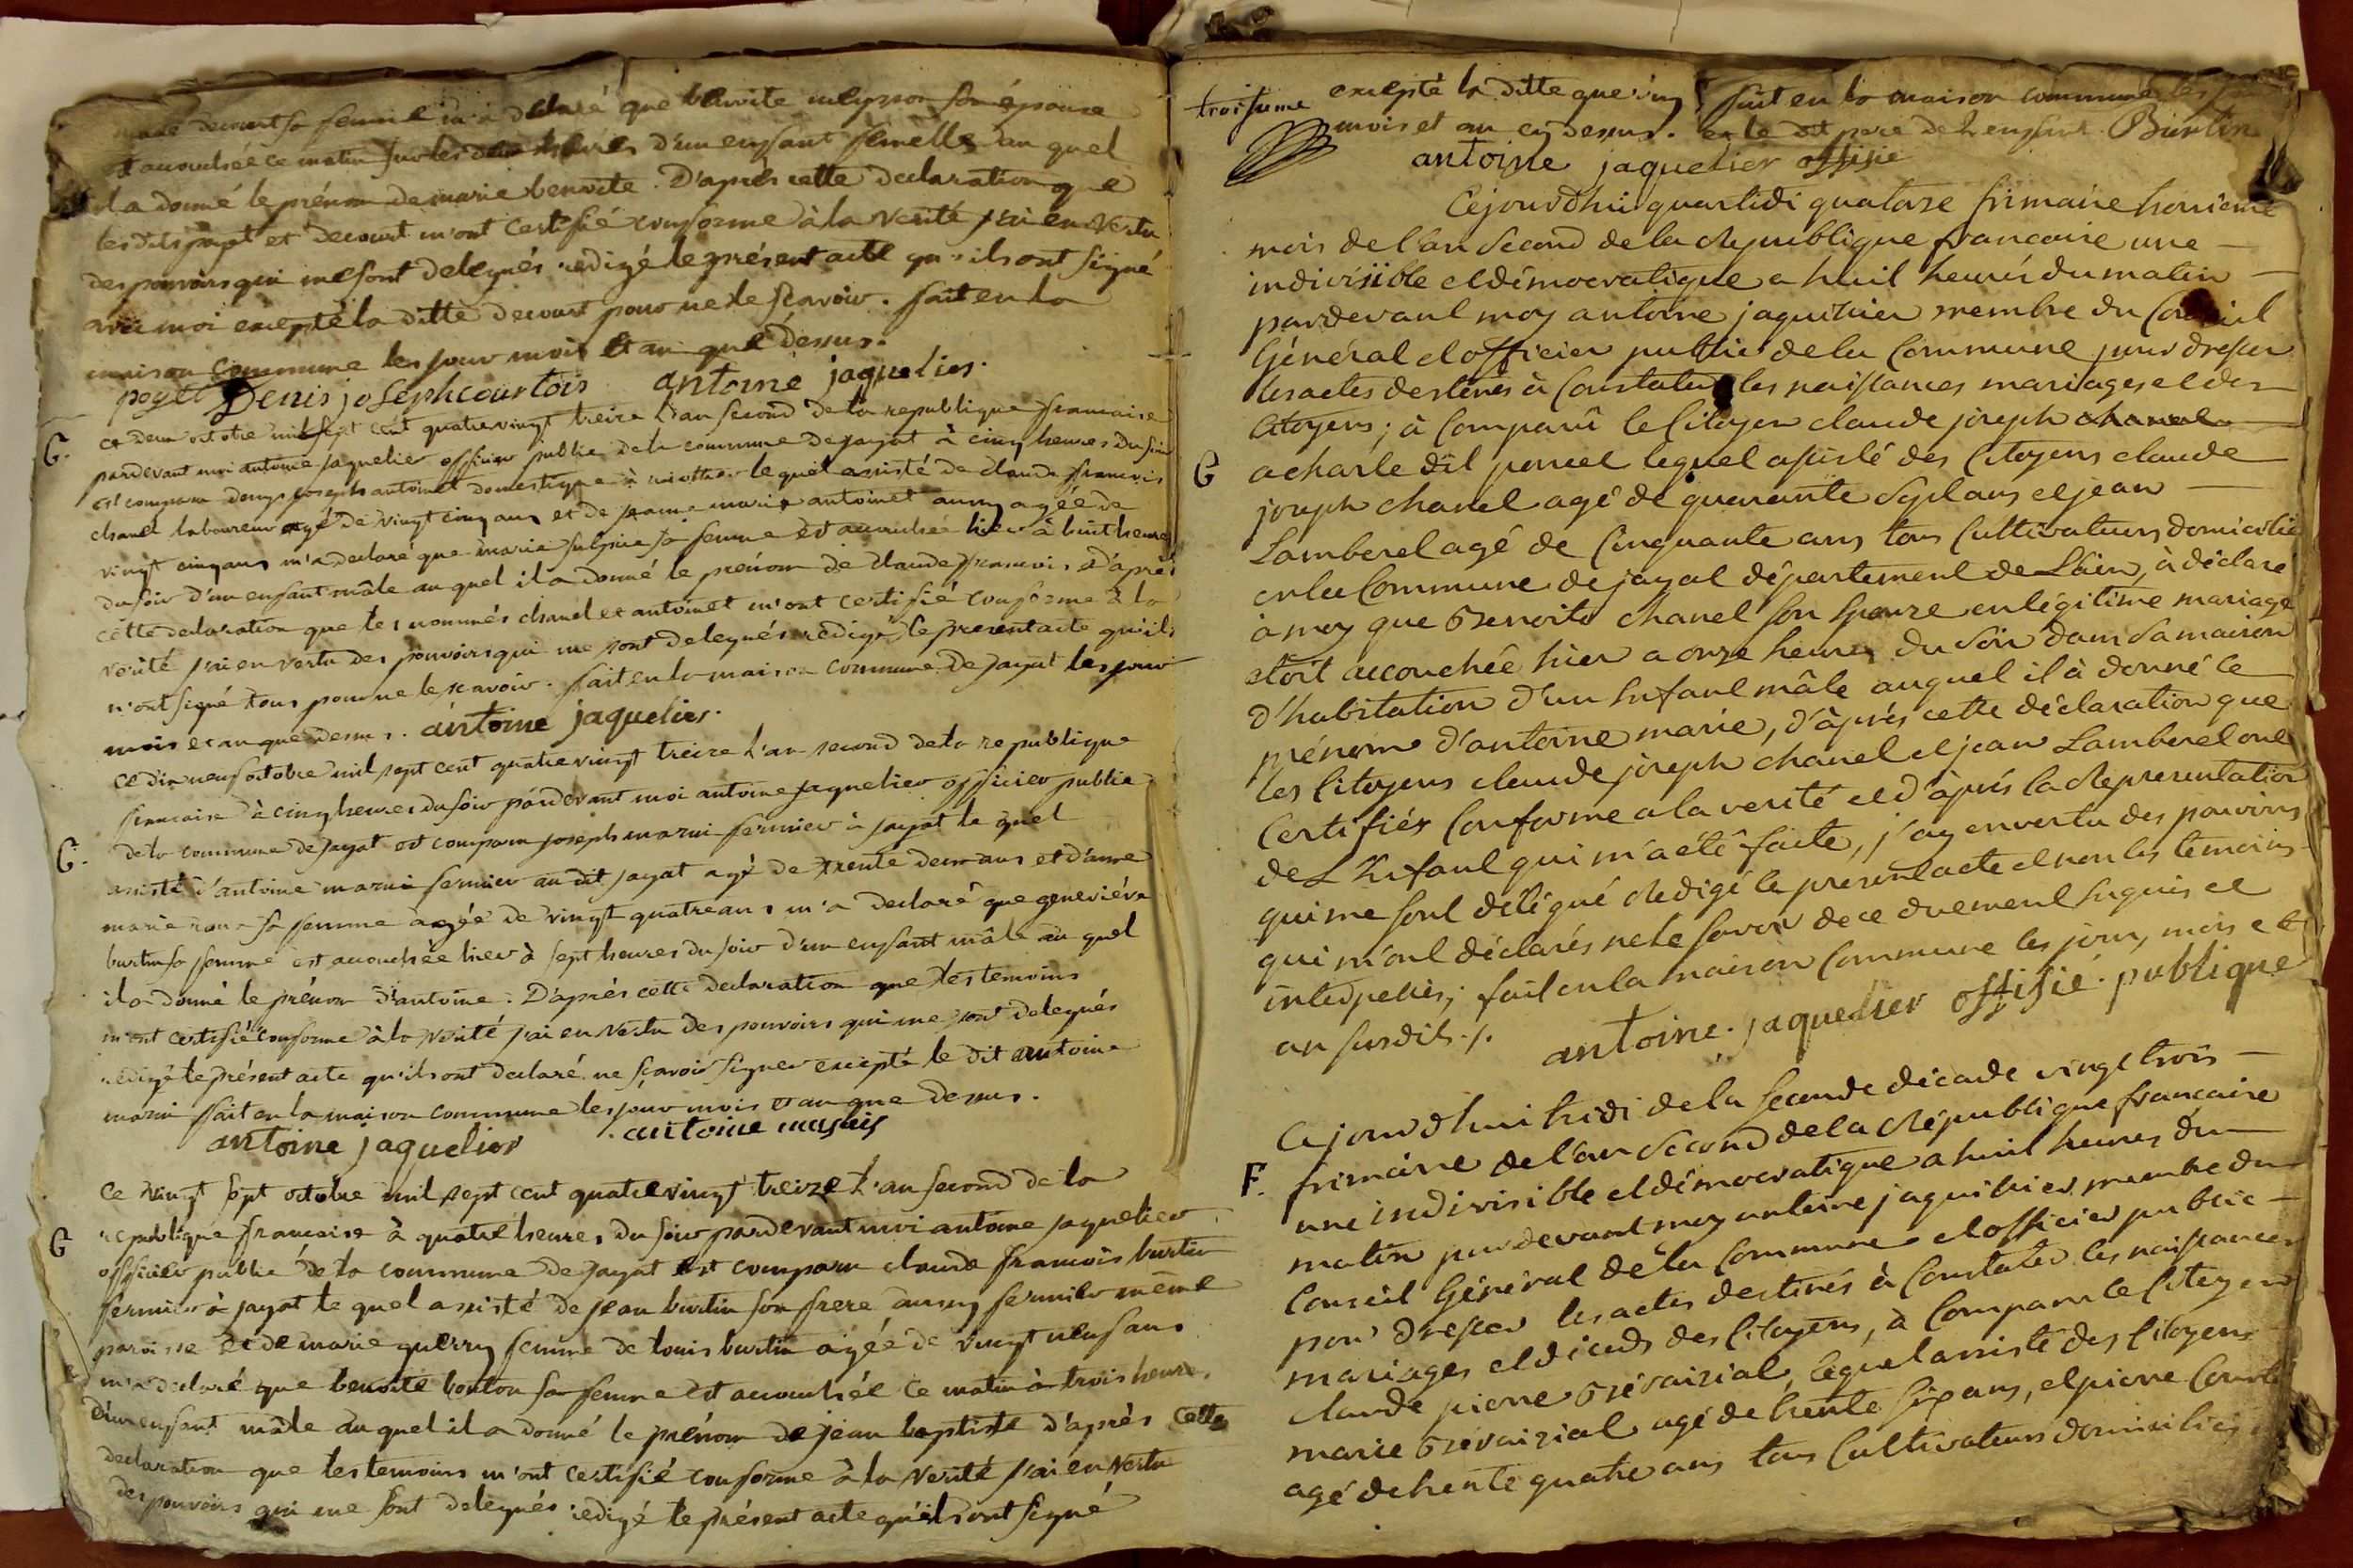 decourt sa femme m'a déclaré que benoite son épouse
est accouchée ce matin sur les deux heures d'un enfant femelle au quel
il a donné le prénom de marie benoite. D'après cette declaration que
les dits poget et decourt m'ont certifié conforme à la verité j'ai en vertu
des pouvoirs qui me sont delegués redigé le présent acte qu'ils ont signé
avec moi excepté la ditte decourt pour ne le sçavoir. fait en la
maison commune les jour mois et an que dessus.
poget Denis joseph courtois antoine jaquelier.
G. ce deux octobre mil sept cent quatre vingt treize l'an second de la republique francaise
pardevant moi antoine jaquelier officier public de la commune de jayat à cinq heures du soir
est comparu denys joseph antoinet domestique à lequel assisté de claude francois
chanel laboureur agé de vingt cinq ans et de jeanne marie antoinet aussy agée de
vingt cinq ans m'a declaré que marie sulpice sa femme est accouchée hier à huit heures
du soir d'un enfant mâle au quel il a donné le prénom de claude francois d'après
cette declaration que les nommés chanel et antoinet m'ont certifié conforme à la
verité j'ai en vertu des pouvoirs qui me sont delegués redigé le present acte qu'ils
n'ont signé tous pour ne le scavoir. fait en la maison commune de jayat les jour
mois et an que dessus. antoine jaquelier.
ce dix neuf octobre mil sept cent quatre vingt treize l'an second de la republique
francaise à cinq heures du soir pardevant moi antoine jaquelier officier public
G. de la commune de jayat est comparu joseph marui fermier à jayat le quel
assisté d'antoine marui fermier au dit jayat agé de trente deux ans et d'anne
marie roux sa femme agée de vingt quatre ans m'a declaré que geneviéve
burtin sa femme est accouchée hier à sept heures du soir d'un enfant mâle au quel
il a donné le prénom d'antoine. D'après cette declaration que les temoins
m'ont certifié conforme à la verité j'ai en vertu des pouvoirs qui me sont delegués
redigé le présent acte qu'ils ont declaré ne sçavoir signer excepté le dit antoine
marui fait en la maison commune les jour mois et an que dessus.
antoine jaquelier antoine
Ce vingt sept octobre mil sept cent quatre vingt treize l'an second de la
G republique francaise à quatre heures du soir pardevant moi antoine jaquelier
officier public de la commune de jayat est comparu claude francois burtin
fermier à jayat le quel assisté de jean burtin son frere aussy fermier même
paroisse et de marie guerry femme de louis burtin agée de vingt neuf ans
m'a declaré que benoite bouton sa femme est accouchée ce matin à trois heures
d'un enfant mâle au quel il a donné le prénom de jean baptiste d'après cette
declaration que les temoins m'ont certifié conforme à la verité j'ai en vertu
des pouvoirs qui me sont delegués redigé le présent acte qu'ils ont signé
troisieme excepté la ditte guerry fait en la maison commune les jour
mois et an cy dessus. et le dit pere de l'enfant. Burtin
antoine jaquelier offisié
Cejourdhui quartidi quatorse frimaire troisieme
mois de l'an second de la Republique francaise une
indivisible et démocratique a huit heures du matin
pardevant moy antoine jaquelier membre du Conseil
Général et officier public de la Commune pour dresser
les actes destinés à Constater les naissances mariages et des
Citoyens; à Comparû le Citoyen claude joseph chanel
G acharle dit poncet lequel assisté des Citoyens claude
joseph chanel agé de quarante sept ans et jean
Lamberel agé de Cinquante ans tous Cultivateurs domicilié
en la Commune de jayat département de Lain, à déclaré
à moy que Benoite chanel son Epouze en légitime mariage
etoit accouchée hier a onze heures du soir dans sa maison
d'habitation d'un Enfant mâle auquel il à donné le
prénom d'antoine marie, d'après cette déclaration que
les Citoyens claude joseph chanel et jean Lamberel ont
Certifiér Conforme a la verité et d'après la Representation
de L'Enfant qui m'a été faite, j'ay en vertu des pouvoirs
qui me sont délégué Redigé le present acte et non les temoins
qui m'ont déclarés ne le savoir de ce duement Enquis et
interpellés; fait en la maison Commune les jour, mois et
an susdits./. antoine. jaquelier offisié. publique
Cejourdhui tridi de la seconde décade vingt trois
F. frimaire de l'an Second de la République francaire
une indivisible et démocratique a huit heures du
matin pardevant moy antoine jaquelier membre du
Conseil Général de la Commune et officier public
pour dresser les actes destinés à Constater les naissances
mariages et décéds des Citoyens, à Comparu le Citoyen
claude pierre Brévairial, lequel assisté des Citoyens
marie Brevairial agé de trente six ans, et pierre
agé de trente quatre ans tous Cultivateurs domiciliés